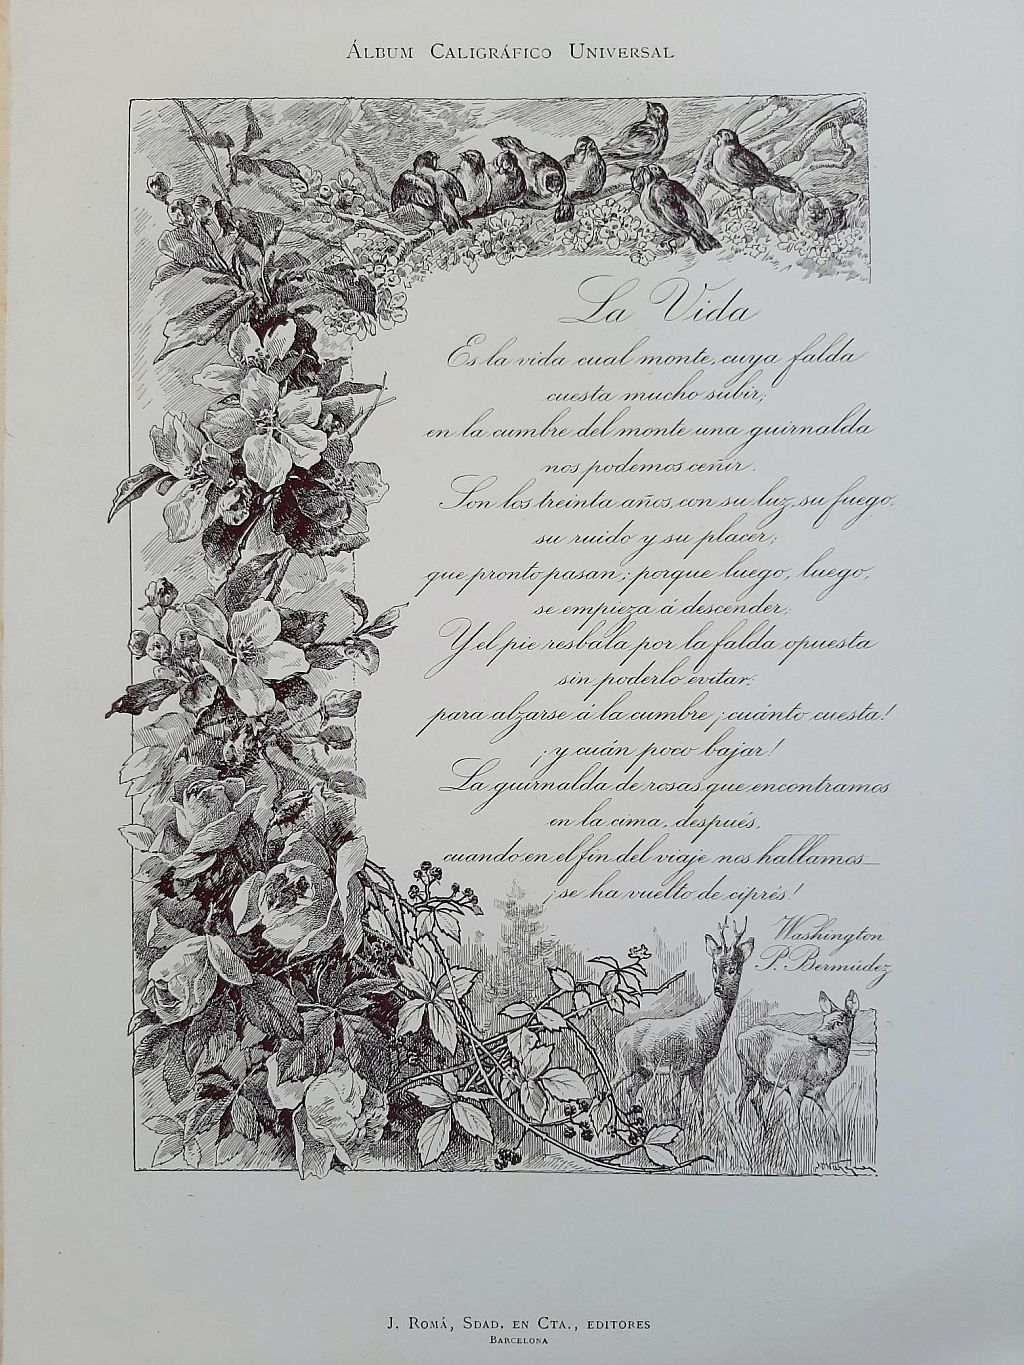 ÁLBUM CALIGRÁFICO UNIVERSAL
La Vida
Es la vida cual monte, cuya falda
cuesta mucho subir;
en la cumbre del monte una guirnalda
nos podemos ceñir.
Son los treinta años, con su luz, su fuego,
su ruido y su placer;
que pronto pasan; porque luego, luego,
se empieza á descender.
Y el pie resbala por la falda opuesta
sin poderlo evitar;
para alzarse á la cumbre ¡cuánto cuesta!
¡y cuán poco bajar!
La guirnalda de rosas que encontramos
en la cima, después,
cuando en el fin del viaje nos hallamos
¡se ha vuelto de ciprés!
Washington
P. Bermúdez
J. ROMÁ, SDAD. EN CTA., EDITORES
BARCELONA